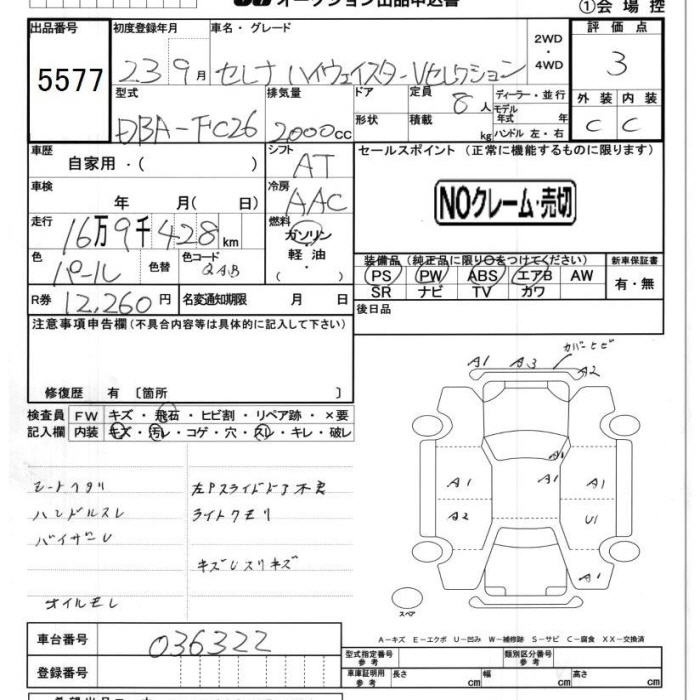 オークション出品申込書
①会場控
出品番号 初度登録年月 車名・グレード 2WD ・ 4WD 評価点
5577 23 9月 セレナ ハイウェイスターVセレクション 3
型式 排気量 ドア 定員 8人 ディーラー・並行 外装 内装
DBA-FC26 2000cc 形状 積載 kg モデル年式 年 ハンドル 左・右 C C
車歴 シフト セールスポイント (正常に機能するものに限ります)
自家用・( ) AT
車検 冷房
年 月( 日) AAC NOクレーム・売切
走行 燃料
16万9千428km ガソリン
色 色替 色コード 軽油・ 装備品(純正品に限り○をつけてください) 新車保証書
パール QAB ( ) PS PW ABS エアB AW 有・無
R券 12,260円 名変通知期限 月 日 SR ナビ TV カワ
注意事項申告欄(不具合内容等は具体的に記入して下さい) 後日品
カバーヒビ
A1 A3 A2
修復歴 有〔箇所 〕
検査員 FW キズ・飛石・ヒビ割・リペア跡・×要
記入欄 内装 キズ・汚レ・コゲ・穴・スレ・キレ・破レ
A1
A1 A1 A1
シートヘタリ 左Pスライドドア不良
ハンドルスレ ライトクモリ A2 U1
バイザーU
キズUスリキズ A1
オイルモレ
スペア
A-キズ E-エクボ U-凹み W-補修跡 S-サビ C-腐食 XX-交換済
車台番号 036322 型式指定番号 参考 類別区分番号 参考
登録番号 車庫証明用 参考 長さ cm 幅 cm 高さ cm